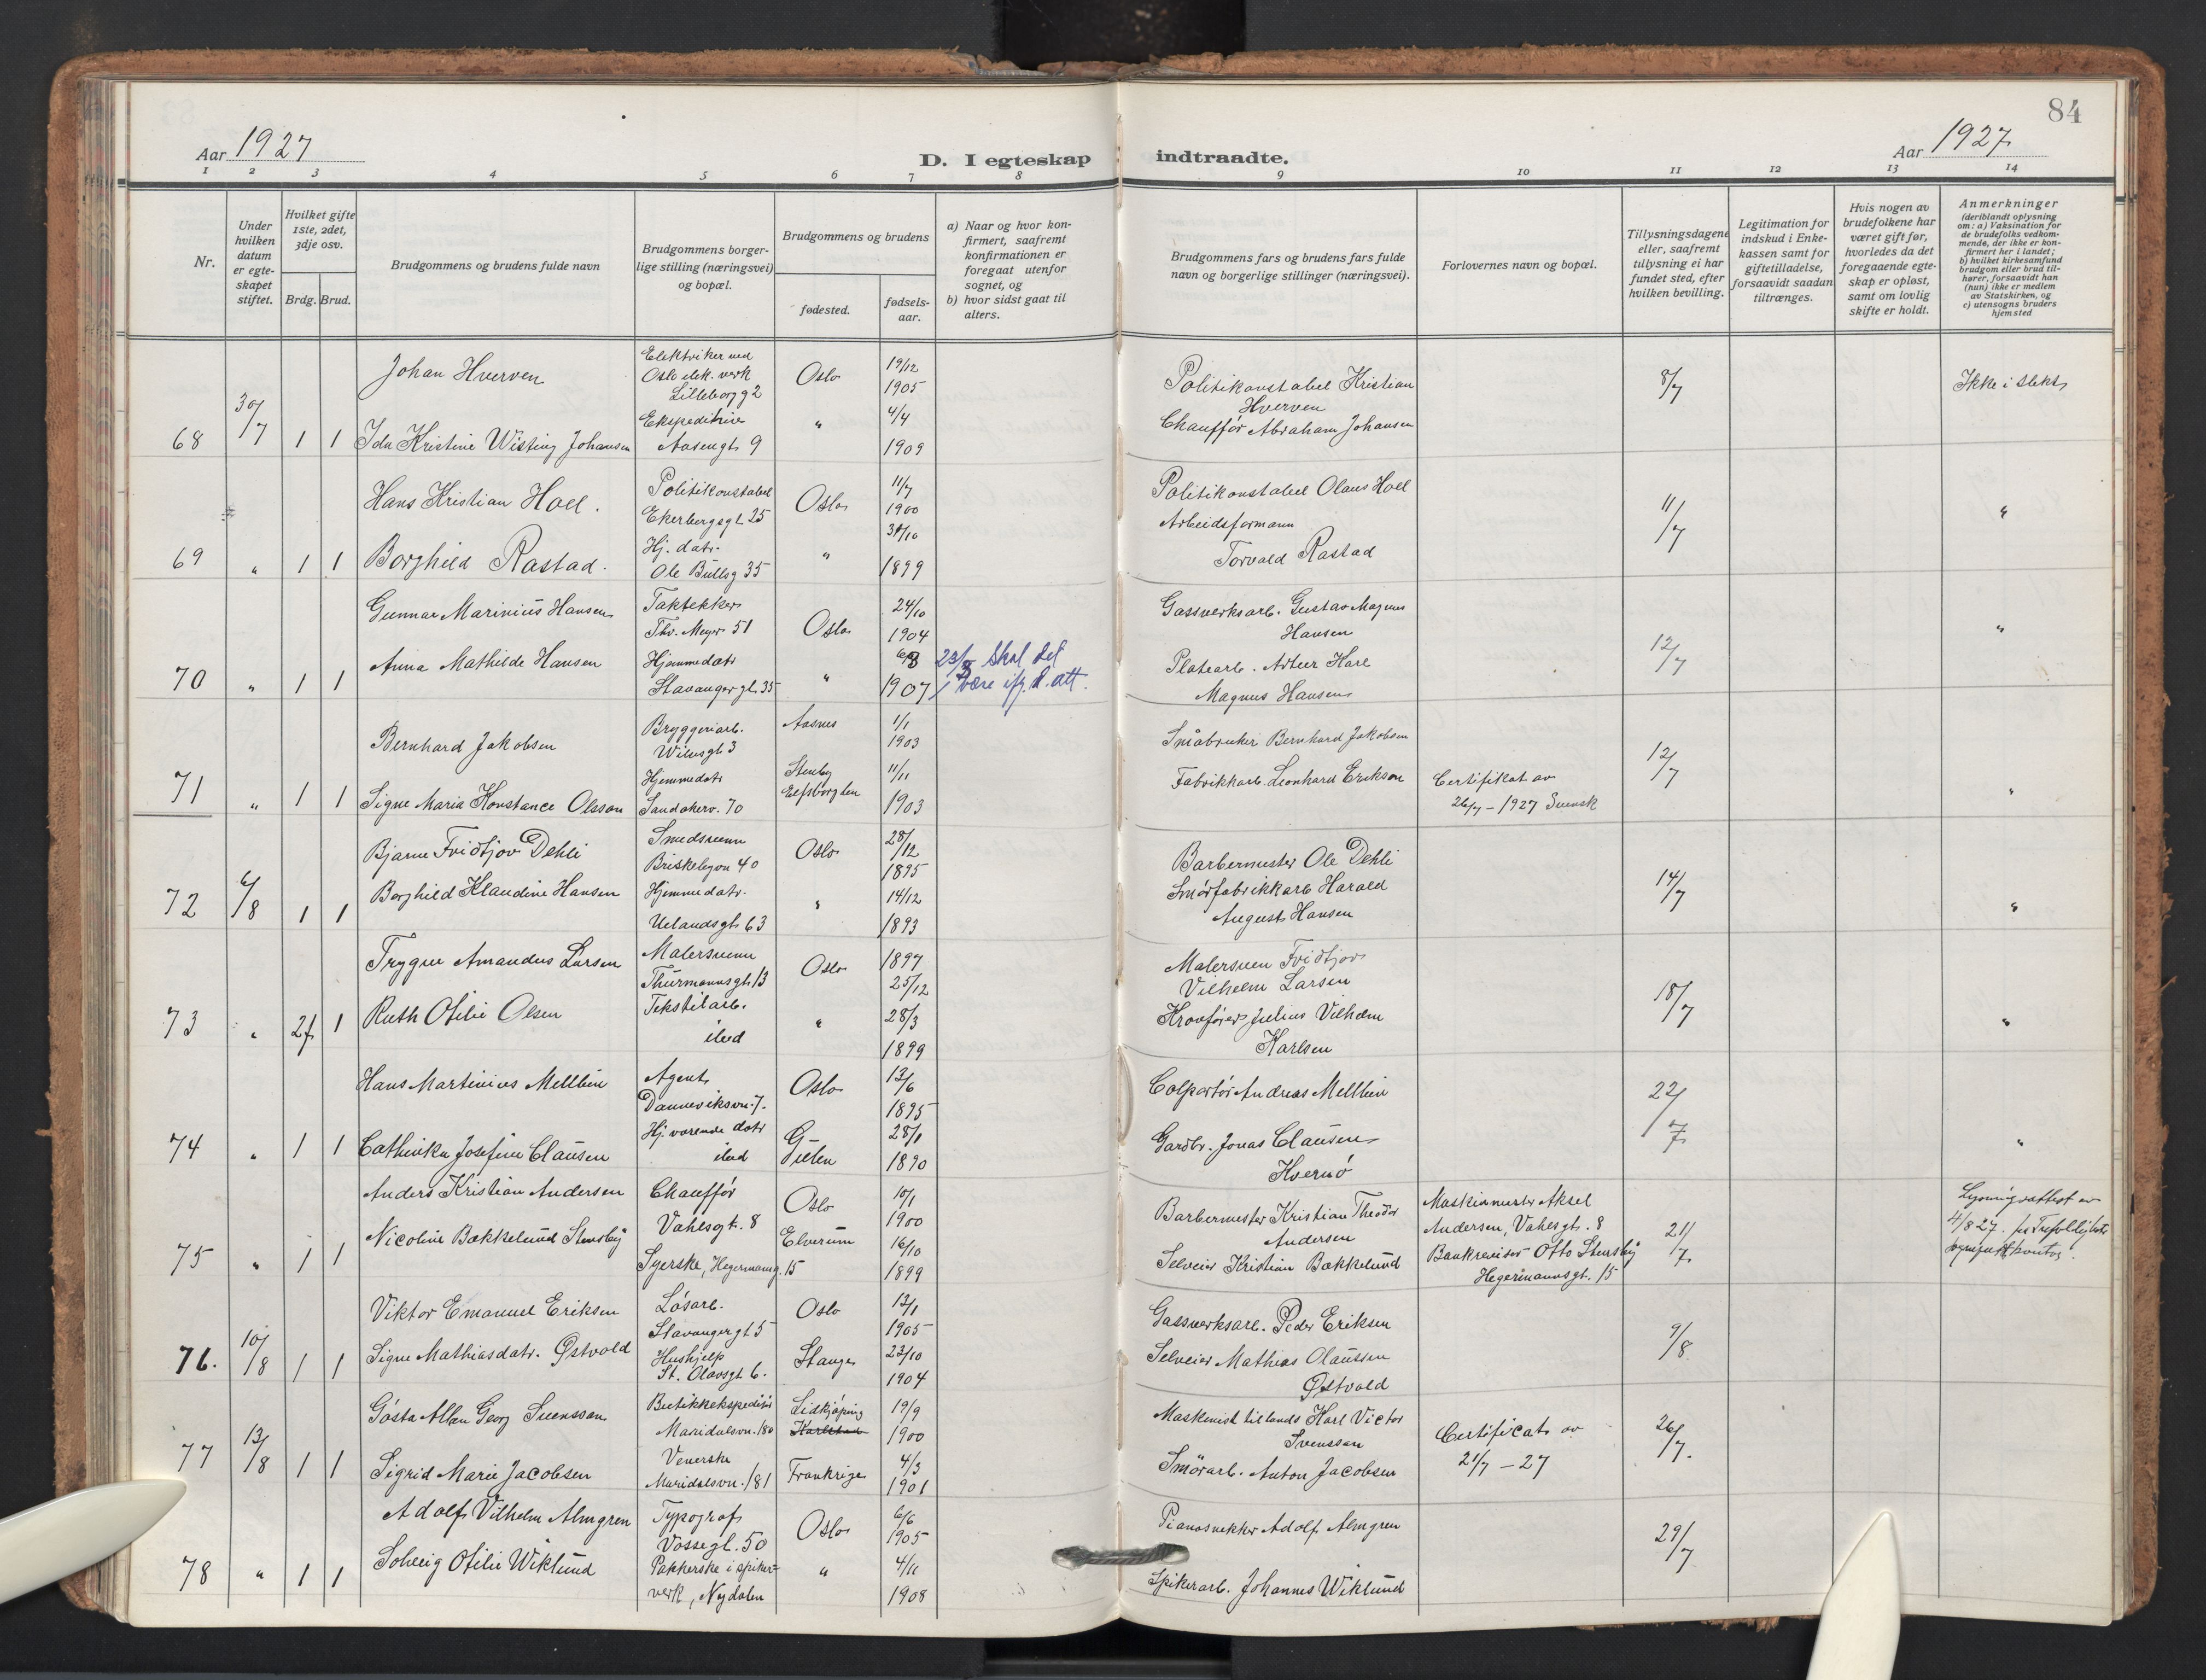 84
Aar 1927
D. I egteskap indtraadte.
Aar 1927
1 2 3 4 5 6 7 8 9 10 11 12 13 14
Nr.
Under hvilken datum er egteskapet stiftet.
Hvilket gifte 1ste, 2det, 3dje osv.
Brdg. Brud.
Brudgommens og brudens fulde navn
Brudgommens borgerlige stilling (næringsvei) og bopæl.
Brudgommens og brudens
fødested.
fødselsaar.
a) Naar og hvor konfirmert, saafremt konfirmationen er foregaat utenfor sognet, og
b) hvor sidst gaat til alters.
Brudgommens fars og brudens fars fulde navn og borgerlige stillinger (næringsvei).
Forlovernes navn og bopæl.
Tillysningsdagene eller, saafremt tillysning ei har fundet sted, efter hvilken bevilling.
Legitimation for indskud i Enkekassen samt for giftetilladelse, forsaavidt saadan tiltrænges.
Hvis nogen av brudefolkene har været gift før, hvorledes da det foregaaende egteskap er opløst, samt om lovlig skifte er holdt.
Anmerkninger
(deriblandt oplysning om: a) Vaksination for de brudefolks vedkommende, der ikke er konfirmert her i landet; b) hvilket kirkesamfund brudgom eller brud tilhører, forsaavidt han (hun) ikke er medlem av Statskirken, og c) utensogns bruders hjemsted
Johan Hverven Elektriker ved Oslo elek. verk Lilleborg g 2 Oslo 19/12 1905 Politikonstabel Kristian Hverven 8/7 Ikke i slekt
68 30/7 1 1 Ida Kristine Wisting Johansen Ekspeditrise Aasengt 9 " 4/4 1909 Chauffør Abraham Johansen
Hans Kristian Hoel. Politikonstabel Ekerbergsgt. 25 Oslo 11/7 1900 Politikonstabel Olaus Hoel 11/7 "
69 " 1 1 Borghild Rastad. Hj. datr. Ole Bullsg 35 " 30/10 1899 Arbeidsformann Torvald Rastad
Gunnar Marinius Hansen Taktekker Thv. Meyer 51 Oslo 24/10 1904 Gassverksarb. Gustav Magnus Hansen 12/7 "
70 " 1 1 Anna Mathilde Hansen Hjemmedatr Stavangergt. 35 " 1907 23/5 skal det være ifg. d. att. Platearb. Artur Karl Magnus Hansen
Bernhard Jakobsen Bryggeriarb. Wilsesgt 3 Aasnes 1/1 1903 Småbruker Bernhard Jakobsen 12/7
71 " 1 1 Signe Maria Konstance Olsson Hjemmedatr Sandakerv. 70 Stenby Elfsborg len 11/11 1903 Fabrikkarb. Leonhard Erikson Certifikat av 26/7 - 1927 Svensk "
Bjarne Fridtjov Dehli Smedsvenn Briskebyvn 40 Oslo 28/12 1895 Barbermester Ole Dehli 14/7
72 6/8 1 1 Borghild Klaudine Hansen Hjemmedatr. Uelandsgt 63 " 14/12 1893 Smørfabrikkarb Harald August Hansen "
Trygve Amandus Larsen Malersvenn Thurmannsgt. 13 Oslo 1897 25/12 Malersven Fridtjov Vilhelm Larsen 18/7
73 " 2f 1 Ruth Ofilie Olsen Tekstilarb. ibid " 28/3 1899 Julius Vilhelm Karlsen "
Hans Martinius Mellbin Agent Danneviksvn. 7. Oslo 13/6 1895 Colportør Andreas Mellbin 22/7
74 " 1 1 Cathinka Josefine Clausen Hj. værende datr ibid 28/1 1890 Gardbr. Jonas Clausen Hvernø "
Anders Kristian Andersen Chauffør Vahlsgt. 8 Oslo 10/1 1900 Barbermester Kristian Theodor Andersen Maskinmester Aksel Andersen, Vahlsgt. 8 21/7 Lysningsattest av 4/8 27.
75 " 1 1 Nicoline Bakkelund Stensby Syerske, Hegermannsg. 15 Elverum 16/10 1899 Selveier Kristian Bakkelund Bankrevisor Otto Stensby Hegermannsgt. 15
Viktor Emanuel Eriksen Løsarb. Stavangergt 5 Oslo 13/1 1905 Gassverksarb. Peder Eriksen 9/8
76. 10/8 1 1 Signe Mathiasdatr. Østvold Hushjelp St. Olavsgt 6. Stange 23/10 1904 Selveier Mathias Olaussen Østvold
Gösta Allan Georg Svensson Butikkekspeditør Maridalsvn. 180 Lidkjøping Karlstad 19/9 1900 Maskinist tillands Karl Victor Svensson Certificat av 21/7 - 27 26/7.
77 13/8 1 1 Sigrid Marie Jacobsen Veverske Maridalsvn. 181 Frankrige 4/3 1901 Smörarb. Anton Jacobsen
Adolf Vilhelm Almgren Typograf Vossegt. 50 Oslo 6/6 1905 Pianosnekker Adolf Almgren 29/7
78 " 1 1 Solveig Ofilie Wiklund Pakkerske i spikerverk, Nydalen " 4/11 1908 Spikerarb. Johannes Wiklund